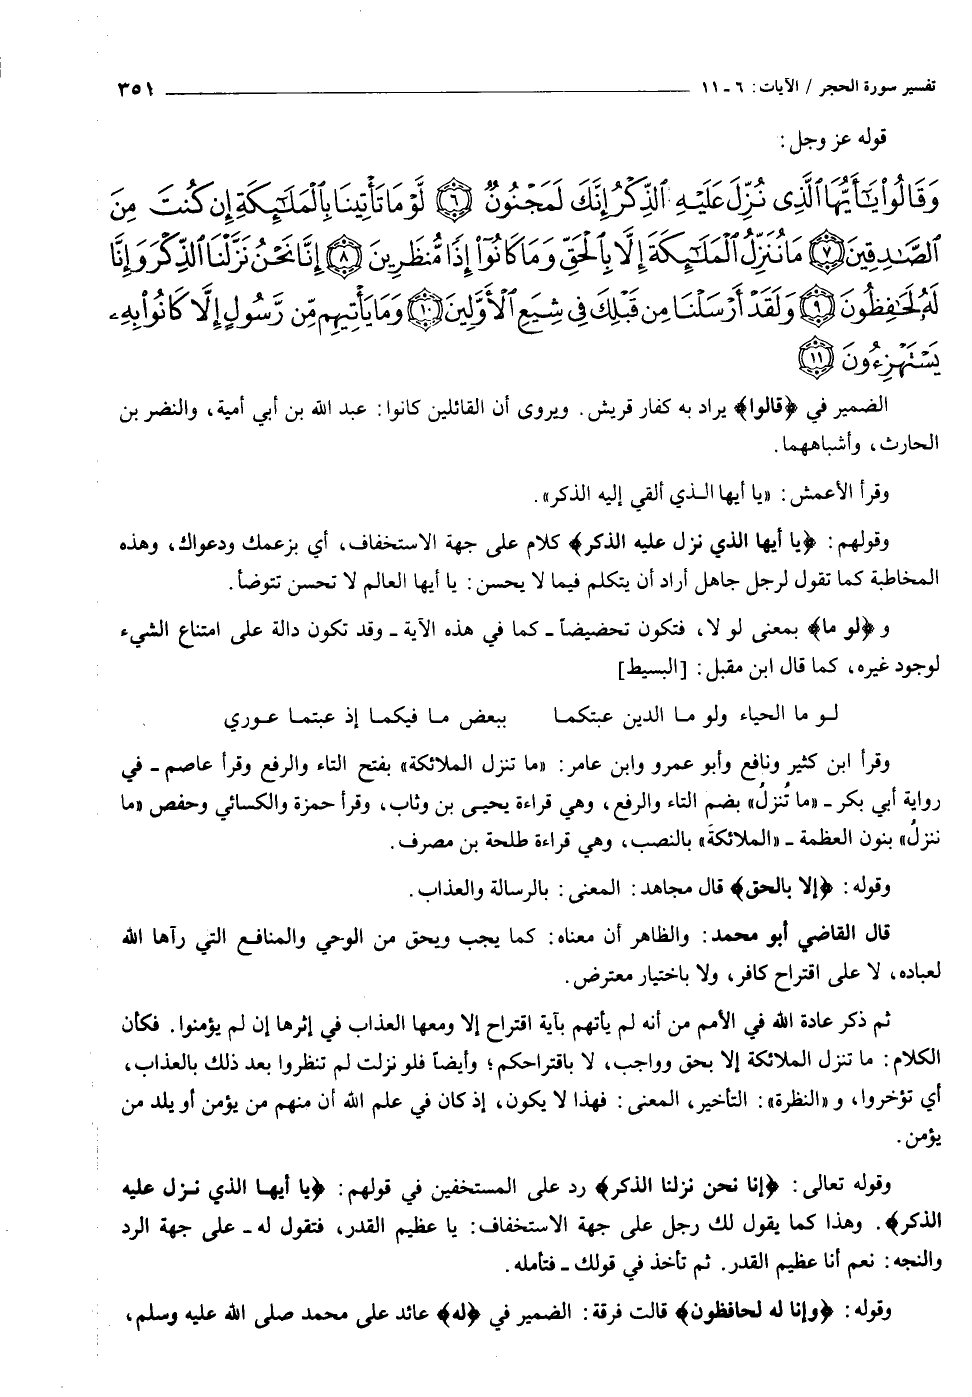 تفسير سورة الحجر / الآيات: ٦ ـ ١١ ٣٥١
قوله عز وجل:
وَقَالُوا۟ يَـٰٓأَيُّهَا ٱلَّذِى نُزِّلَ عَلَيْهِ ٱلذِّكْرُ إِنَّكَ لَمَجْنُونٌ ۝٦ لَّوْ مَا تَأْتِينَا بِٱلْمَلَـٰٓئِكَةِ إِن كُنتَ مِنَ
ٱلصَّـٰدِقِينَ ۝٧ مَا نُنَزِّلُ ٱلْمَلَـٰٓئِكَةَ إِلَّا بِٱلْحَقِّ وَمَا كَانُوٓا۟ إِذًا مُّنظَرِينَ ۝٨ إِنَّا نَحْنُ نَزَّلْنَا ٱلذِّكْرَ وَإِنَّا
لَهُۥ لَحَـٰفِظُونَ ۝٩ وَلَقَدْ أَرْسَلْنَا مِن قَبْلِكَ فِى شِيَعِ ٱلْأَوَّلِينَ ۝١٠ وَمَا يَأْتِيهِم مِّن رَّسُولٍ إِلَّا كَانُوا۟ بِهِۦ
يَسْتَهْزِءُونَ ۝١١
الضمير في ﴿قالوا﴾ يراد به كفار قريش. ويروى أن القائلين كانوا: عبد الله بن أبي أمية، والنضر بن
الحارث، وأشباههما.
وقرأ الأعمش: «يا أيها الـذي ألقي إليه الذكر».
وقولهم: ﴿يا أيها الذي نزل عليه الذكر﴾ كلام على جهة الاستخفاف، أي بزعمك ودعواك، وهذه
المخاطبة كما تقول لرجل جاهل أراد أن يتكلم فيما لا يحسن: يا أيها العالم لا تحسن تتوضأ.
و ﴿لو ما﴾ بمعنى لو لا، فتكون تحضيضاً ـ كما في هذه الآية ـ وقد تكون دالة على امتناع الشيء
لوجود غيره، كما قال ابن مقبل: [البسيط]
لـو ما الحياء ولو مـا الدين عبتكمـا ببعض مـا فيكمـا إذ عبتمـا عـوري
وقرأ ابن كثير ونافع وأبو عمرو وابن عامر: «ما تنزل الملائكة» بفتح التاء والرفع وقرأ عاصم ـ في
رواية أبي بكر ـ «ما تُنزلُ» بضم التاء والرفع، وهي قراءة يحيـى بن وثاب، وقرأ حمزة والكسائي وحفص «ما
ننزلُ» بنون العظمة ـ «الملائكةَ» بالنصب، وهي قراءة طلحة بن مصرف.
وقوله: ﴿إلا بالحق﴾ قال مجاهد: المعنى: بالرسالة والعذاب.
قال القاضي أبو محمد: والظاهر أن معناه: كما يجب ويحق من الوحي والمنافـع التي رآها الله
لعباده، لا على اقتراح كافر، ولا باختيار معترض.
ثم ذكر عادة الله في الأمم من أنه لم يأتهم بآية اقتراح إلا ومعها العذاب في إثرها إن لم يؤمنوا. فكأن
الكلام: ما تنزل الملائكة إلا بحق وواجب، لا باقتراحكم؛ وأيضاً فلو نزلت لم تنظروا بعد ذلك بالعذاب،
أي تؤخروا، و «النظرة»: التأخير، المعنى: فهذا لا يكون، إذ كان في علم الله أن منهم من يؤمن أو يلد من
يؤمن.
وقوله تعالى: ﴿إنا نحن نزلنا الذكر﴾ رد على المستخفين في قولهم: ﴿يا أيهـا الذي نـزل عليه
الذكر﴾. وهذا كما يقول لك رجل على جهة الاستخفاف: يا عظيم القدر، فتقول له ـ على جهة الرد
والنجه: نعم أنا عظيم القدر. ثم تأخذ في قولك ـ فتأمله.
وقوله: ﴿وإنا له لحافظون﴾ قالت فرقة: الضمير في ﴿له﴾ عائد على محمد صلى الله عليه وسلم،